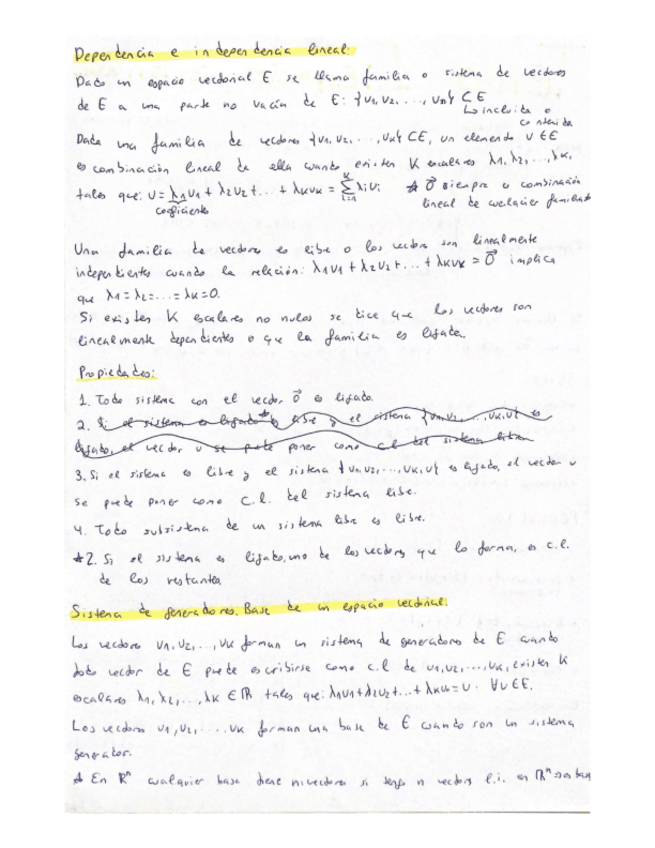 Dependencia e independencia lineal:
Dado un espacio vectorial E se llama familia o sistema de vectores
de E a una parte no vacía de E: {v1, v2, ..., vn} ⊂ E
↳ incluida o
contenida
Dada una familia de vectores {v1, v2, ..., vk} ⊂ E, un elemento v ∈ E
es combinación lineal de ella cuando existen K escalares λ1, λ2, ..., λk,
tales que: v = λ1v1 + λ2v2 + ... + λkvk = ∑ᵢ₌₁ᴷ λivi ☆ 0⃗ siempre es combinación
coeficientes lineal de cualquier familia
Una familia de vectores es libre o los vectores son linealmente
independientes cuando la relación: λ1v1 + λ2v2 + ... + λkvk = 0⃗ implica
que λ1 = λ2 = ... = λk = 0.
Si existen K escalares no nulos se dice que los vectores son
linealmente dependientes o que la familia es ligada.
Propiedades:
1. Todo sistema con el vector 0⃗ es ligado.
2. Si el sistema es ligado es libre y el sistema {v1, v2, ..., vk, v} es
ligado, el vector v se puede poner como c.l. del sistema libre.
3. Si el sistema es libre y el sistema {v1, v2, ..., vk, v} es ligado, el vector v
se puede poner como c.l. del sistema libre.
4. Todo subsistema de un sistema libre es libre.
*2. Si el sistema es ligado, uno de los vectores que lo forma, es c.l.
de los restantes.
Sistema de generadores. Base de un espacio vectorial:
Los vectores v1, v2, ..., vk forman un sistema de generadores de E cuando
todo vector de E puede escribirse como c.l de v1, v2, ..., vk, existen K
escalares λ1, λ2, ..., λk ∈ ℝ tales que: λ1v1 + λ2v2 + ... + λkvk = v. ∀v ∈ E.
Los vectores v1, v2, ..., vk forman una base de E cuando son un sistema
generador.
☆ En ℝⁿ cualquier base tiene n vectores si tengo n vectores l.i. en ℝⁿ ⇒ es base